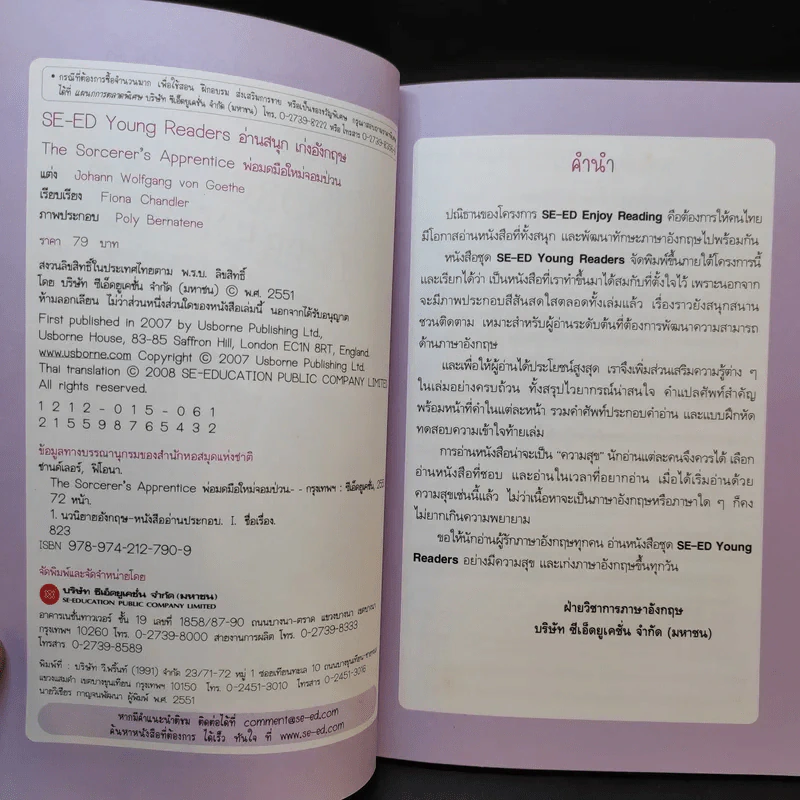 • กรณีที่ต้องการซื้อจำนวนมาก เพื่อใช้สอน ฝึกอบรม ส่งเสริมการขาย หรือเป็นของขวัญพิเศษ กรุณาสอบถามรายละเอียด
ได้ที่ แผนกการตลาดพิเศษ บริษัท ซีเอ็ดยูเคชั่น จำกัด (มหาชน) โทร. 0-2739-8222 หรือ โทรสาร
SE-ED Young Readers อ่านสนุก เก่งอังกฤษ
The Sorcerer's Apprentice พ่อมดมือใหม่จอมป่วน
แต่ง Johann Wolfgang von Goethe
เรียบเรียง Fiona Chandler
ภาพประกอบ Poly Bernatene
ราคา 79 บาท
สงวนลิขสิทธิ์ในประเทศไทยตาม พ.ร.บ. ลิขสิทธิ์
โดย บริษัท ซีเอ็ดยูเคชั่น จำกัด (มหาชน) © พ.ศ. 2551
ห้ามลอกเลียน ไม่ว่าส่วนหนึ่งส่วนใดของหนังสือเล่มนี้ นอกจากได้รับอนุญาต
First published in 2007 by Usborne Publishing Ltd.,
Usborne House, 83-85 Saffron Hill, London EC1N 8RT, England.
www.usborne.com Copyright © 2007 Usborne Publishing Ltd.
Thai translation © 2008 SE-EDUCATION PUBLIC COMPANY LIMITED
All rights reserved.
1 2 1 2 - 0 1 5 - 0 6 1
2 1 5 5 9 8 7 6 5 4 3 2
ข้อมูลทางบรรณานุกรมของสำนักหอสมุดแห่งชาติ
ชานด์เลอร์, ฟิโอนา.
The Sorcerer's Apprentice พ่อมดมือใหม่จอมป่วน.- - กรุงเทพฯ : ซีเอ็ดยูเคชั่น,
72 หน้า.
1. นวนิยายอังกฤษ-หนังสืออ่านประกอบ. I. ชื่อเรื่อง.
823
ISBN 978-974-212-790-9
จัดพิมพ์และจัดจำหน่ายโดย
บริษัท ซีเอ็ดยูเคชั่น จำกัด (มหาชน)
SE-EDUCATION PUBLIC COMPANY LIMITED
อาคารเนชั่นทาวเวอร์ ชั้น 19 เลขที่ 1858/87-90 ถนนบางนา-ตราด แขวงบางนา เขตบางนา
กรุงเทพฯ 10260 โทร. 0-2739-8000 สายงานการผลิต โทร. 0-2739-8333
โทรสาร 0-2739-8589
พิมพ์ที่ : บริษัท วี.พริ้นท์ (1991) จำกัด 23/71-72 หมู่ 1 ซอยเทียนทะเล 10 ถนนบางขุนเทียน-ชายทะเล
แขวงแสมดำ เขตบางขุนเทียน กรุงเทพฯ 10150 โทร. 0-2451-3010 โทรสาร 0-2451-3016
นายวิเชียร กาญจนพัฒนา ผู้พิมพ์ พ.ศ. 2551
หากมีคำแนะนำติชม ติดต่อได้ที่ comment@se-ed.com
ค้นหาหนังสือที่ต้องการ ได้เร็ว ทันใจ ที่ www.se-ed.com
คำนำ
ปณิธานของโครงการ SE-ED Enjoy Reading คือต้องการให้คนไทย
มีโอกาสอ่านหนังสือที่ทั้งสนุก และพัฒนาทักษะภาษาอังกฤษไปพร้อมกัน
หนังสือชุด SE-ED Young Readers จัดพิมพ์ขึ้นภายใต้โครงการนี้
และเรียกได้ว่า เป็นหนังสือที่เราทำขึ้นมาได้สมกับที่ตั้งใจไว้ เพราะนอกจาก
จะมีภาพประกอบสีสันสดใสตลอดทั้งเล่มแล้ว เรื่องราวยังสนุกสนาน
ชวนติดตาม เหมาะสำหรับผู้อ่านระดับต้นที่ต้องการพัฒนาความสามารถ
ด้านภาษาอังกฤษ
และเพื่อให้ผู้อ่านได้ประโยชน์สูงสุด เราจึงเพิ่มส่วนเสริมความรู้ต่าง ๆ
ในเล่มอย่างครบถ้วน ทั้งสรุปไวยากรณ์น่าสนใจ คำแปลศัพท์สำคัญ
พร้อมหน้าที่คำในแต่ละหน้า รวมคำศัพท์ประกอบคำอ่าน และแบบฝึกหัด
ทดสอบความเข้าใจท้ายเล่ม
การอ่านหนังสือน่าจะเป็น "ความสุข" นักอ่านแต่ละคนจึงควรได้ เลือก
อ่านหนังสือที่ชอบ และอ่านในเวลาที่อยากอ่าน เมื่อได้เริ่มอ่านด้วย
ความสุขเช่นนี้แล้ว ไม่ว่าเนื้อหาจะเป็นภาษาอังกฤษหรือภาษาใด ๆ ก็คง
ไม่ยากเกินความพยายาม
ขอให้นักอ่านผู้รักภาษาอังกฤษทุกคน อ่านหนังสือชุด SE-ED Young
Readers อย่างมีความสุข และเก่งภาษาอังกฤษขึ้นทุกวัน
ฝ่ายวิชาการภาษาอังกฤษ
บริษัท ซีเอ็ดยูเคชั่น จำกัด (มหาชน)